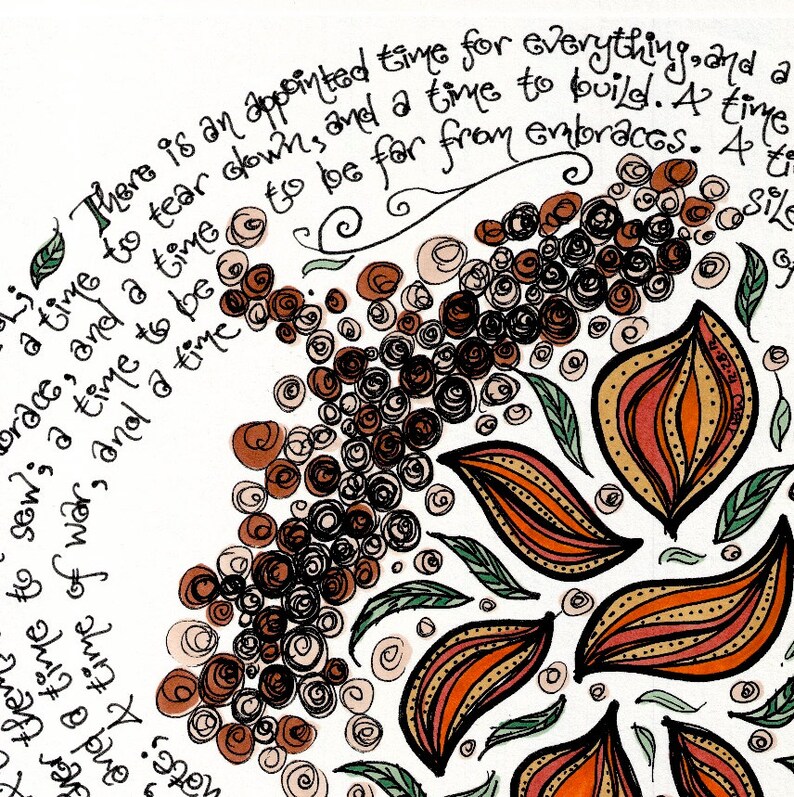 There is an appointed time for everything, and a
a time to tear down, and a time to build. A time
and a time to be far from embraces. A
time to sew; a time to be
A time of war, and a time
and a time
them